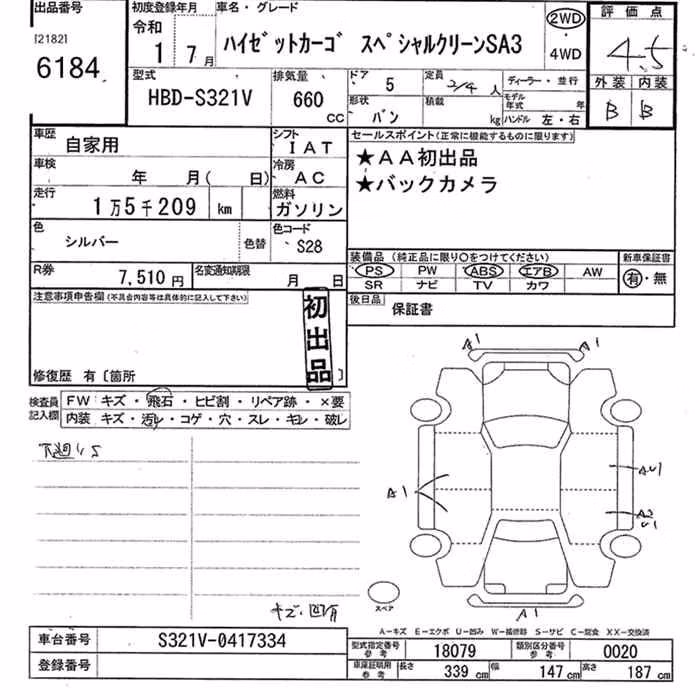 出品番号
[2182]
6184
初度登録年月
令和
1 7月
車名・グレード
ハイゼットカーゴ スペシャルクリーンSA3
2WD
・
4WD
評価点
4.5
外装 内装
B B
型式
HBD-S321V
排気量
660
CC
ドア
5
形状
バン
定員
2/4 人
積載
kg
ディーラー・並行
モデル年式 年
ハンドル 左・右
車歴
自家用
シフト
IAT
車検
年 月( 日)
冷房
AC
走行
1万5千209 km
燃料
ガソリン
色
シルバー
色替
色コード
S28
R券
7,510円
名変通知期限
月 日
セールスポイント(正常に機能するものに限ります)
★AA初出品
★バックカメラ
装備品 (純正品に限り○をつけてください)
PS PW ABS エアB AW
SR ナビ TV カワ
新車保証書
有・無
後日品
保証書
注意事項申告欄(不具合内容等は具体的に記入して下さい)
初出品
修復歴 有〔箇所 〕
検査員
記入欄
FW キズ・飛石・ヒビ割・リペア跡・×要
内装 キズ・汚レ・コゲ・穴・スレ・キレ・破レ
下廻りS
キズ・凹有
A1 A1
AU1
A1
A2
U1
A1
スペア
A-キズ E-エクボ U-凹み W-補修跡 S-サビ C-腐食 XX-交換済
車台番号
S321V-0417334
登録番号
型式指定番号
参考
18079
類別区分番号
参考
0020
車庫証明用
参考
長さ 339 cm
幅 147 cm
高さ 187 cm